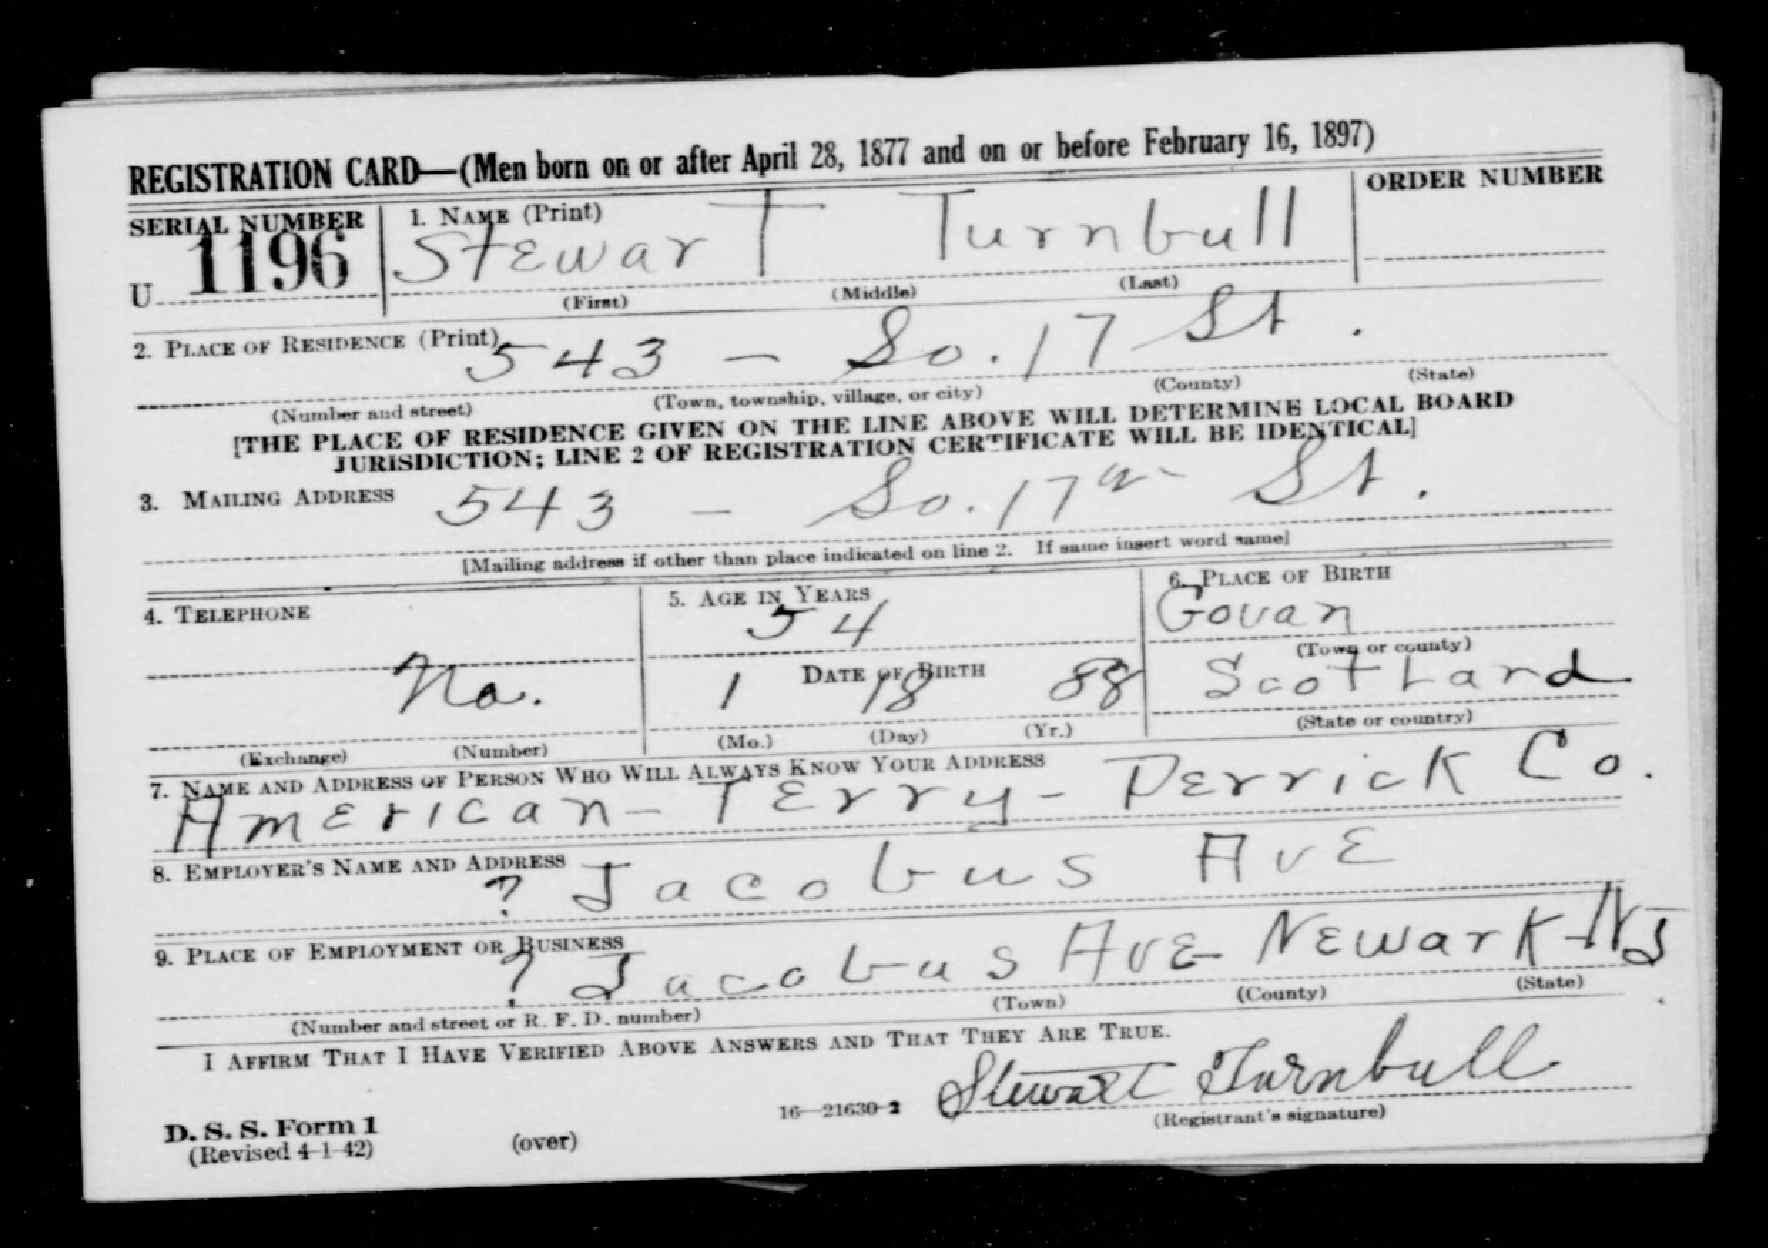 REGISTRATION CARD—(Men born on or after April 28, 1877 and on or before February 16, 1897)
SERIAL NUMBER
U 1196
1. NAME (Print)
StEwarT Turnbull
(First) (Middle) (Last)
ORDER NUMBER
2. PLACE OF RESIDENCE (Print)
543 – So. 17 St.
(Number and street) (Town, township, village, or city) (County) (State)
[THE PLACE OF RESIDENCE GIVEN ON THE LINE ABOVE WILL DETERMINE LOCAL BOARD
JURISDICTION; LINE 2 OF REGISTRATION CERTIFICATE WILL BE IDENTICAL]
3. MAILING ADDRESS
543 – So. 17th St.
[Mailing address if other than place indicated on line 2. If same insert word same]
4. TELEPHONE
No.
(Exchange) (Number)
5. AGE IN YEARS
54
DATE OF BIRTH
1 18 88
(Mo.) (Day) (Yr.)
6. PLACE OF BIRTH
Govan
(Town or county)
ScoTLand
(State or country)
7. NAME AND ADDRESS OF PERSON WHO WILL ALWAYS KNOW YOUR ADDRESS
AmErican – TErry – DErricK Co.
8. EMPLOYER'S NAME AND ADDRESS
? Jacobus AvE
9. PLACE OF EMPLOYMENT OR BUSINESS
? Jacobus AvE – NEwarK – NJ
(Number and street or R. F. D. number) (Town) (County) (State)
I AFFIRM THAT I HAVE VERIFIED ABOVE ANSWERS AND THAT THEY ARE TRUE.
Stewart Turnbull
(Registrant's signature)
D. S. S. Form 1
(Revised 4-1-42)
(over)
16—21630-2